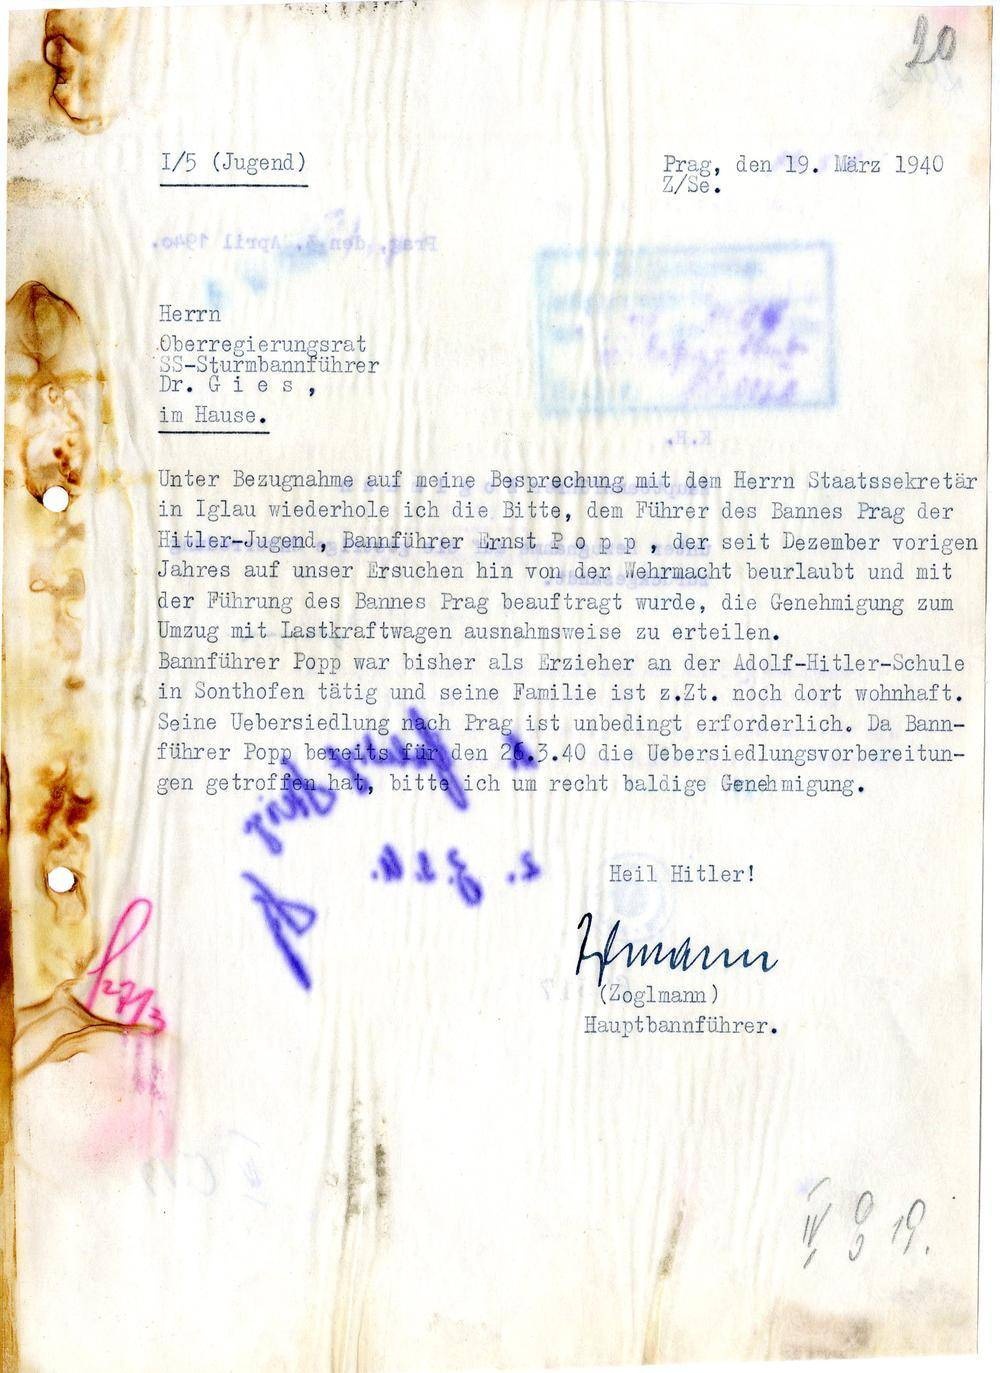 20
I/5 (Jugend)
Prag, den 19. März 1940
Z/Se.
Prag, den 3. April 1940.
Herrn
Oberregierungsrat
SS-Sturmbannführer
Dr. G i e s ,
im Hause.
K.H.
Unter Bezugnahme auf meine Besprechung mit dem Herrn Staatssekretär
in Iglau wiederhole ich die Bitte, dem Führer des Bannes Prag der
Hitler-Jugend, Bannführer Ernst P o p p , der seit Dezember vorigen
Jahres auf unser Ersuchen hin von der Wehrmacht beurlaubt und mit
der Führung des Bannes Prag beauftragt wurde, die Genehmigung zum
Umzug mit Lastkraftwagen ausnahmsweise zu erteilen.
Bannführer Popp war bisher als Erzieher an der Adolf-Hitler-Schule
in Sonthofen tätig und seine Familie ist z.Zt. noch dort wohnhaft.
Seine Uebersiedlung nach Prag ist unbedingt erforderlich. Da Bann-
führer Popp bereits für den 26.3.40 die Uebersiedlungsvorbereitun-
gen getroffen hat, bitte ich um recht baldige Genehmigung.
2. z.d.A.
Heil Hitler!
(Zoglmann)
Hauptbannführer.
27/3